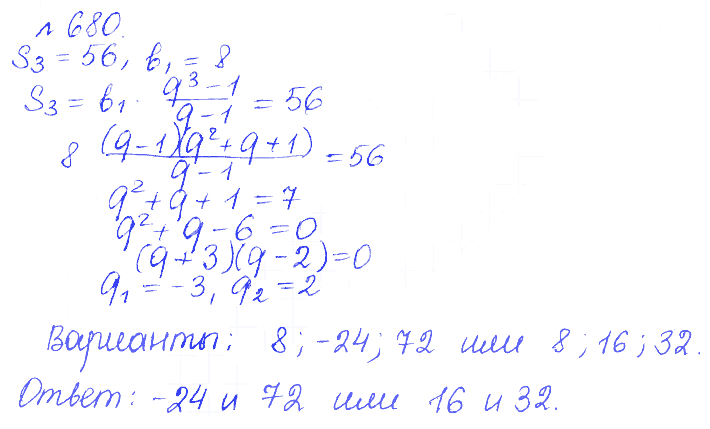 № 680.
S₃ = 56, b₁ = 8
S₃ = b₁ · (q³ - 1)/(q - 1) = 56
8 (q - 1)(q² + q + 1)/(q - 1) = 56
q² + q + 1 = 7
q² + q - 6 = 0
(q + 3)(q - 2) = 0
q₁ = -3, q₂ = 2
Варианты: 8; -24; 72 или 8; 16; 32.
Ответ: -24 и 72 или 16 и 32.